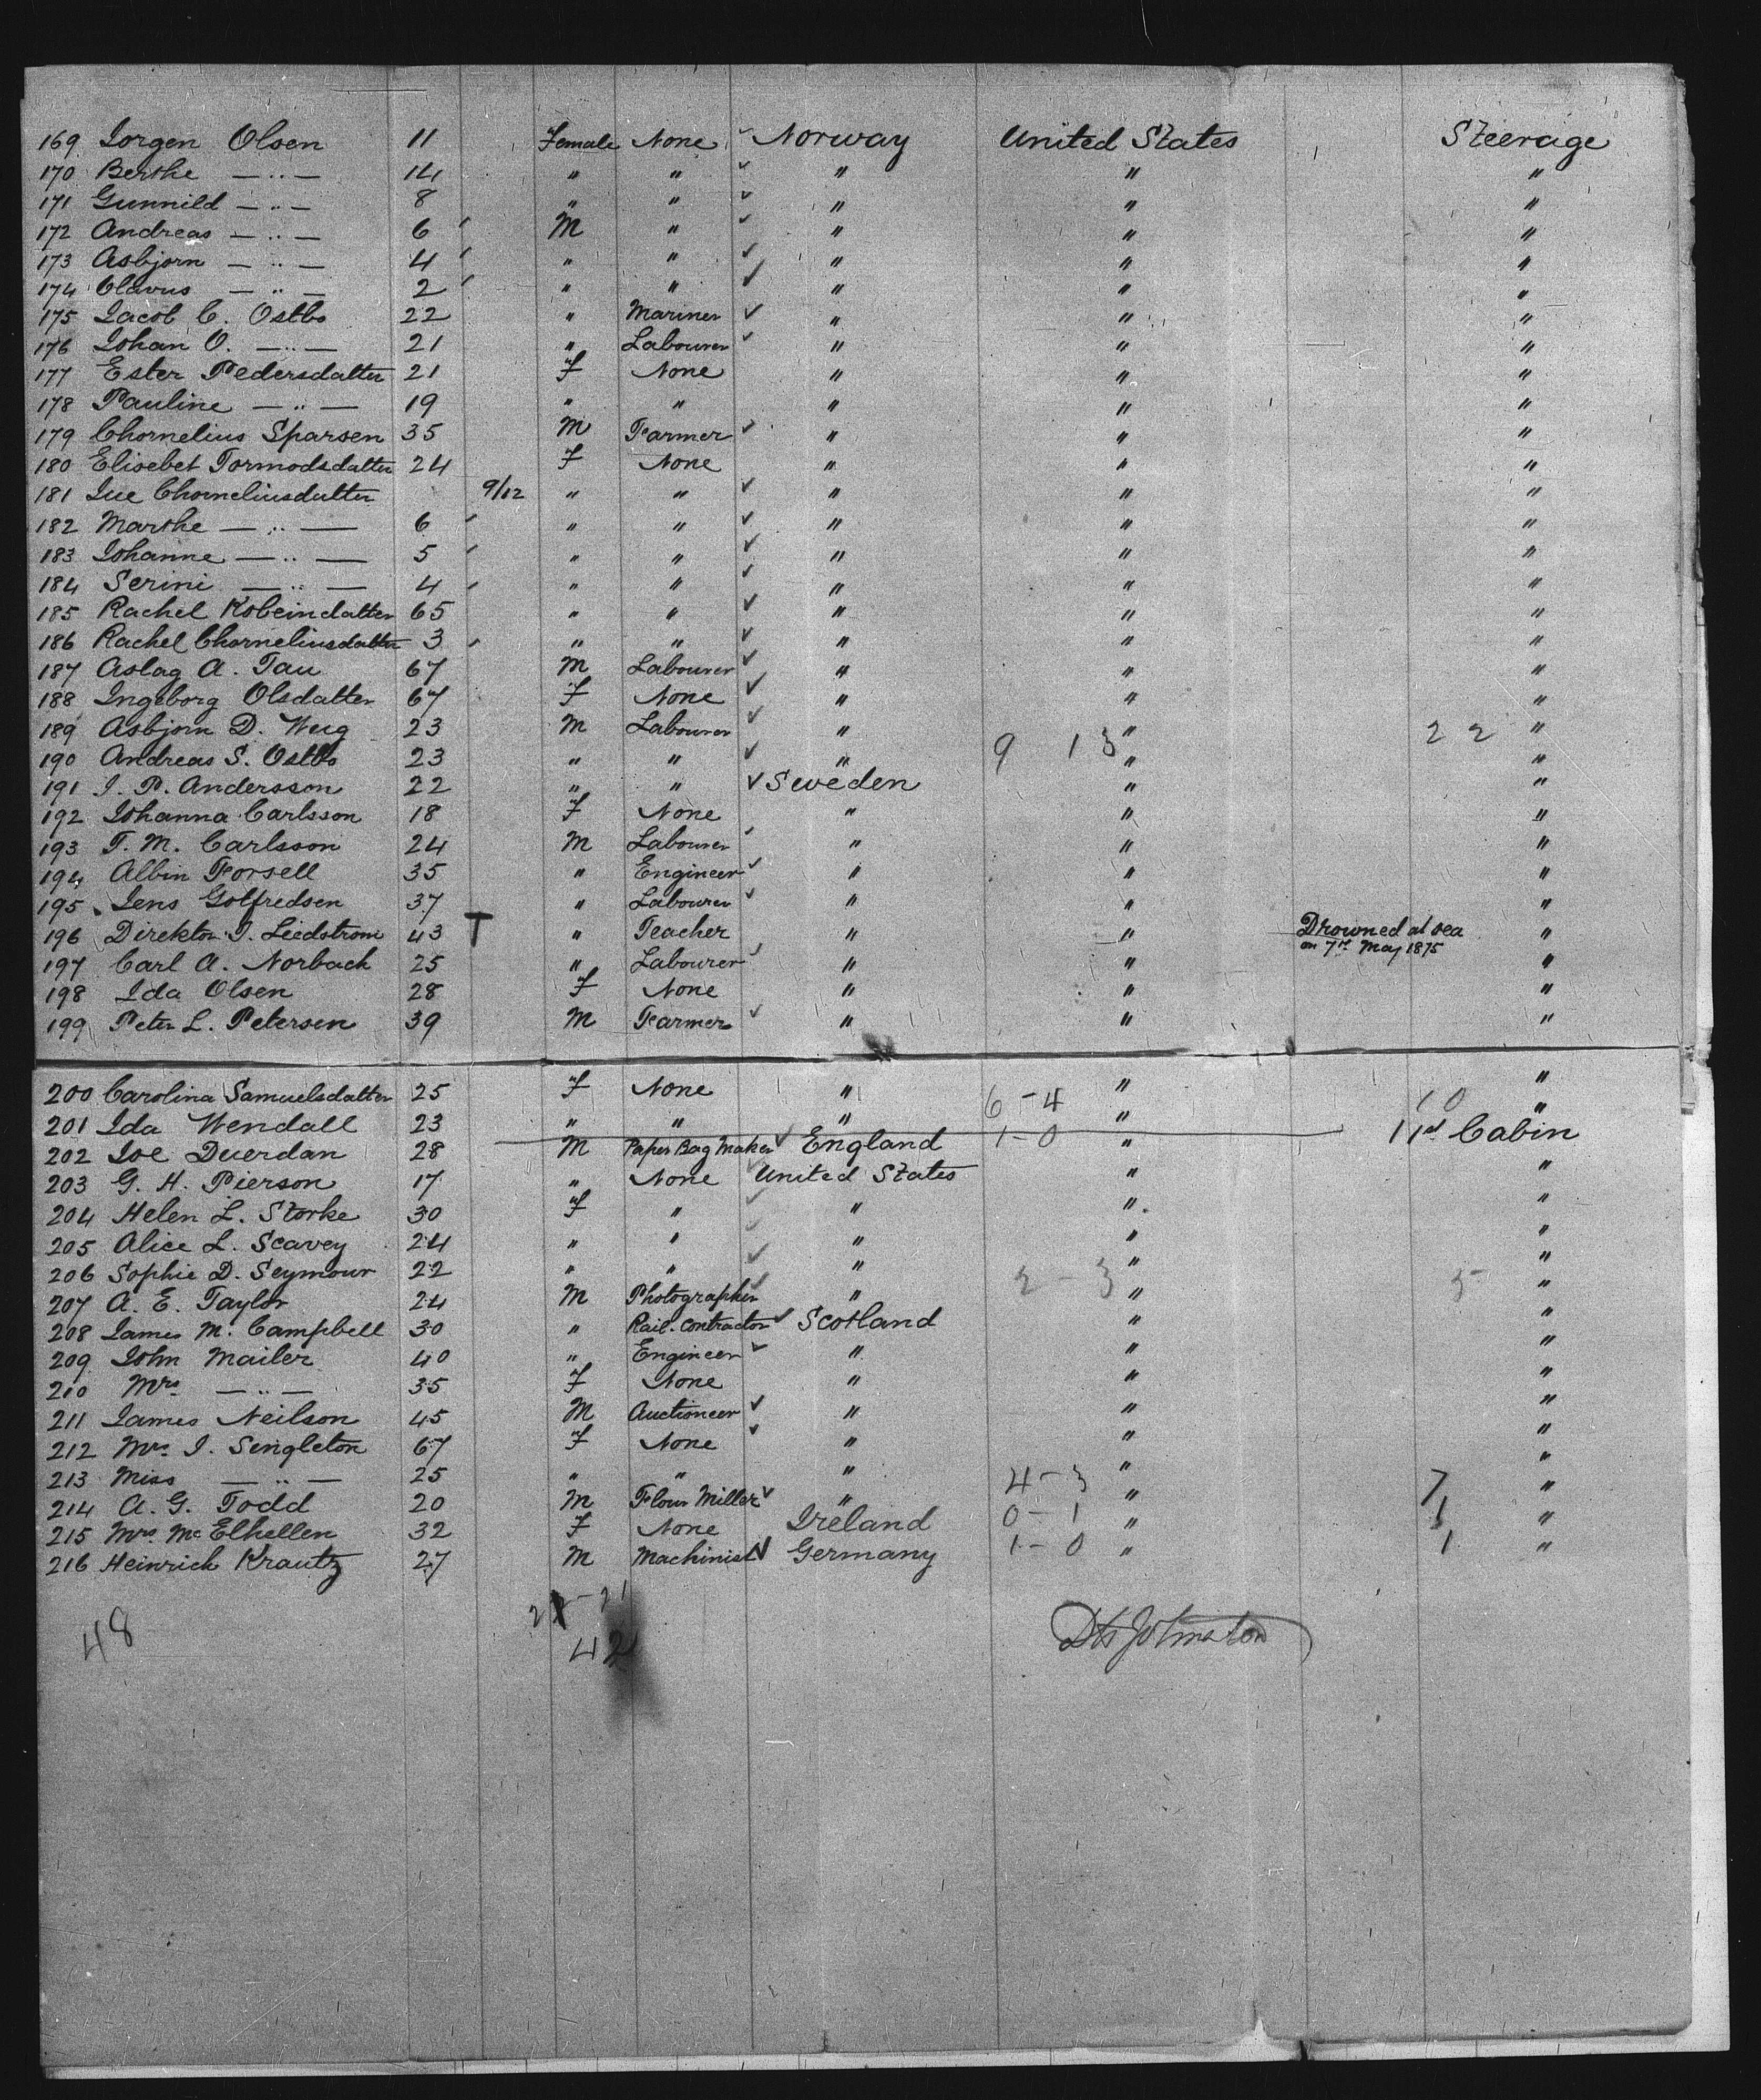 169 Jorgen Olsen 11 Female None ✓ Norway United States Steerage
170 Berthe — " — 14 " " ✓ " " "
171 Gunnild — " — 8 " " ✓ " " "
172 Andreas — " — 6 M " ✓ " " "
173 Asbjorn — " — 4 " " ✓ " " "
174 Olavus — " — 2 " " ✓ " " "
175 Jacob C. Ostbo 22 " Mariner ✓ " " "
176 Johan O. — " — 21 " Labourer ✓ " " "
177 Ester Pedersdatter 21 F None " " "
178 Pauline — " — 19 " " " " "
179 Chornelius Sparsen 35 M Farmer ✓ " " "
180 Elisebet Tormodsdatter 24 F None " " "
181 Chorneliusdatter 9/12 " " ✓ " " "
182 Marthe — " — 6 " " ✓ " " "
183 Johanne — " — 5 " " ✓ " " "
184 Serini — " — 4 " " ✓ " " "
185 Rachel Kobeindatter 65 " " ✓ " " "
186 Rachel Chorneliusdatter 3 " " ✓ " " "
187 Aslag A. Tau 67 M Labourer ✓ " " "
188 Ingeborg Olsdatter 67 F None ✓ " " "
189 Asbjorn D. 23 M Labourer ✓ " " 22 "
190 Andreas S. Ostbo 23 " " ✓ " 9 13 " "
191 J. P. Andersson 22 " " ✓ Sweden " "
192 Johanna Carlsson 18 F None " " "
193 T. M. Carlsson 24 M Labourer ✓ " " "
194 Albin Forsell 35 " Engineer ✓ " " "
195 Jens Golfredsen 37 " Labourer ✓ " " "
196 Direktor J. Liedstrom 43 T " Teacher " " Drowned at sea "
on 7th May 1875
197 Carl A. Norbach 25 " Labourer ✓ " " "
198 Ida Olsen 28 F None " " "
199 Peter L. Petersen 39 M Farmer ✓ " " "
200 Carolina Samuelsdatter 25 F None " 6-4 " 10 "
201 Ida Wendall 23 " " " " "
202 Joe Duerdan 28 M Paper Bag Maker ✓ England 1-0 " 1 1st Cabin
203 G. H. Pierson 17 " None United States " "
204 Helen L. Storke 30 F " ✓ " " "
205 Alice L. Seavey 24 " " ✓ " " "
206 Sophie D. Seymour 22 " " ✓ " " "
207 A. E. Taylor 24 M Photographer ✓ " 2-3 " 5 "
208 James M. Campbell 30 " Rail. Contractor ✓ Scotland " "
209 John Mailer 40 " Engineer ✓ " " "
210 Mrs — " — 35 F None " " "
211 James Neilson 45 M Auctioneer ✓ " " "
212 Mrs J. Singleton 67 F None ✓ " " "
213 Miss — " — 25 " " " 4-3 " 7 "
214 A. G. Todd 20 M Flour Miller ✓ " " "
215 Mrs McElhellen 32 F None Ireland 0-1 " 1 "
216 Heinrich Krautz 27 M Machinist ✓ Germany 1-0 " 1 "
48 42